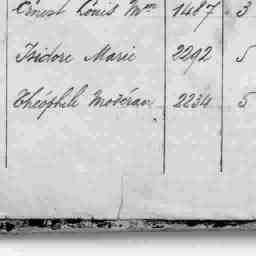 Ernest Louis Mce 1487 3
Isidore Marie 2292 5
Théophile Modéran 2234 5